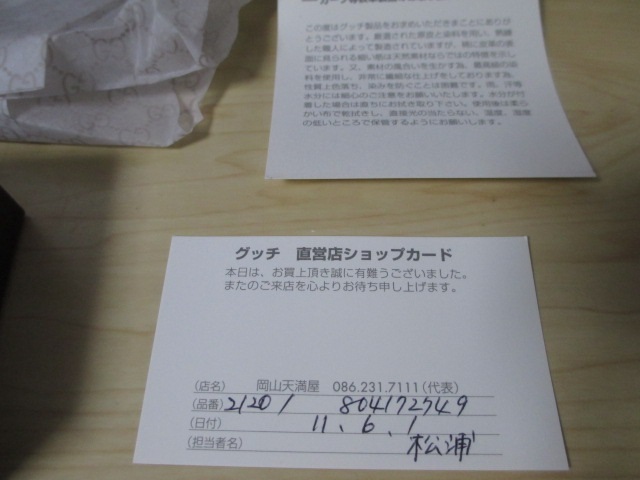 この度はグッチ製品をお求めいただきまことにありが
とうございます。厳選された原皮と染料を用い、熟練
した職人によって製造されていますが、稀に皮革の表
面に見られる細い筋は天然素材ならではの特徴を示し
ています。又、素材の風合いを生かす為、最高級の染
料を使用し、非常に繊細な仕上げをしております為、
性質上色落ち、染みを防ぐことは困難です。雨、汗等
水分には細心のご注意をお願いいたします。水分が付
着した場合は直ちにお拭き取り下さい。使用後は柔ら
かい布で乾拭きし、直接光の当たらない、温度、湿度
の低いところで保管するようにお願いします。
グッチ 直営店ショップカード
本日は、お買上頂き誠に有難うございました。
またのご来店を心よりお待ち申し上げます。
(店名) 岡山天満屋 086.231.7111(代表)
(品番) 21201 804172749
(日付) 11.6.1
(担当者名) 松浦